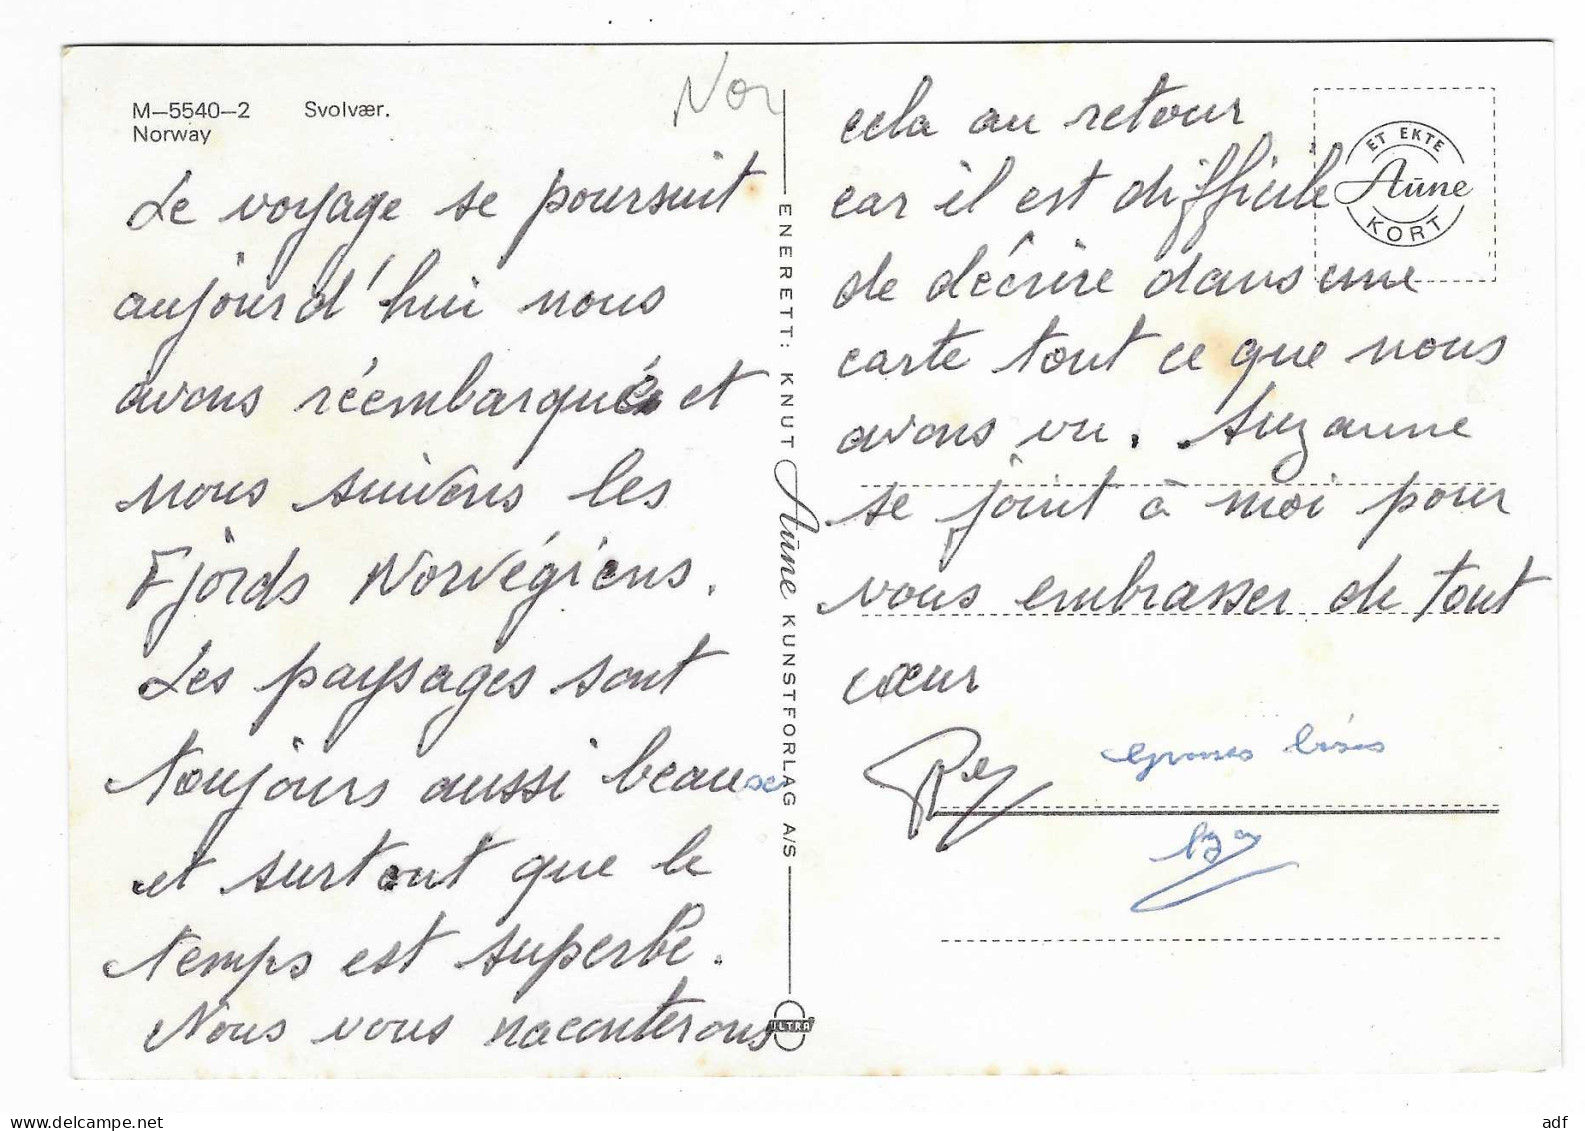 M—5540—2 Svolvær.
Norway
Nor
Le voyage se poursuit
aujourd'hui nous
avons réembarqué et
nous suivons les
Fjords Norvégiens.
Les paysages sont
toujours aussi beaux
et surtout que le
temps est superbe.
Nous vous raconterons
ENERETT: KNUT Aune KUNSTFORLAG A/S
ULTRA
cela au retour
car il est difficile
de décrire dans une
carte tout ce que nous
avons vu. Suzanne
se joint à moi pour
vous embrasser de tout
cœur
Grosses bises
ET EKTE
Aune
KORT
www.delcampe.net
adf